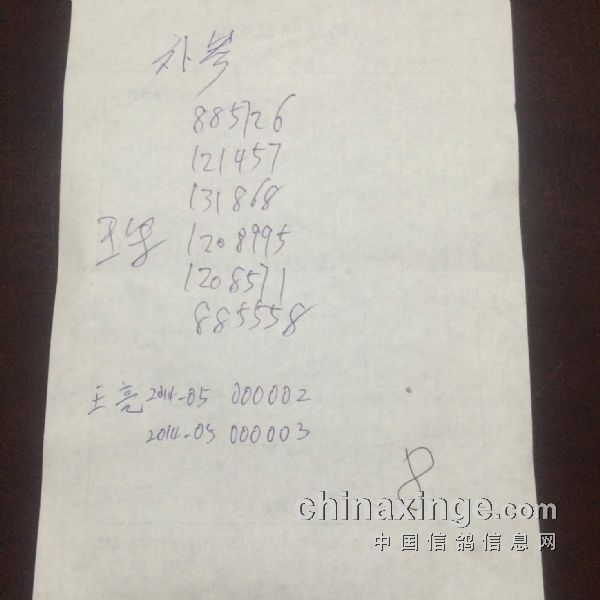 885726
121457
131868
1208995
1208571
885558
王亮 2014-05 000002
2014-05 000003
8
chinaxinge.com
中国信鸽信息网